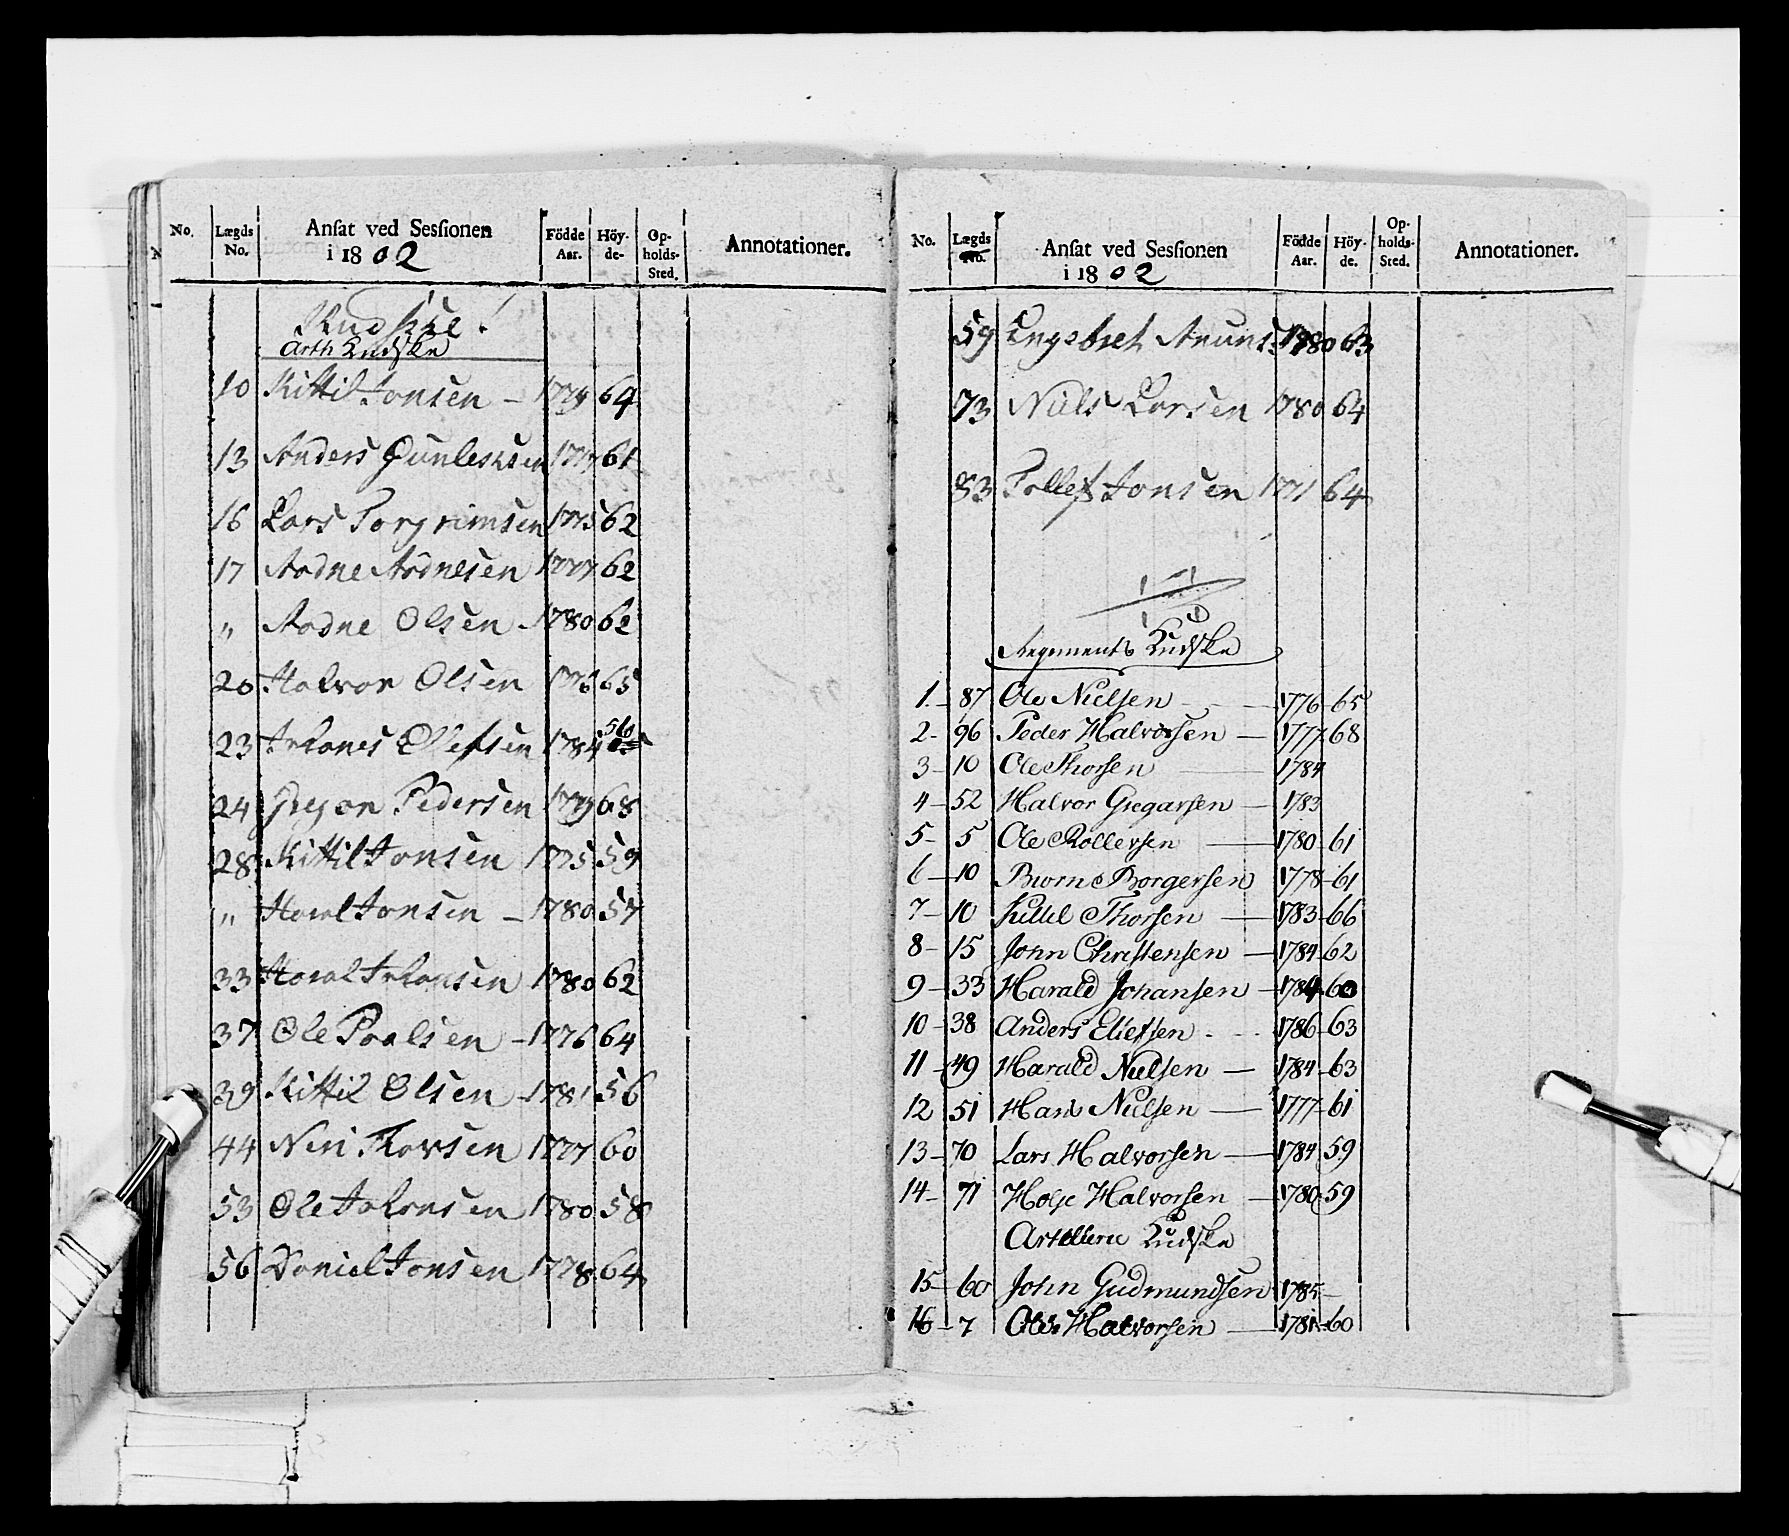 No. Lægds No. Ansat ved Sessionen i 1802 Födde Aar. Höy-de- Op-holds-Sted. Annotationer.
Kudske!
Arth Kudske
10 Kittil Jonsen – 1779 64
13 Anders Gunleksen 1777 61
16 Lars Torgrimsen 1775 62
17 Aadne Aadnesen 1777 62
" Aadne Olsen – 1780 62
20 Halvor Olsen 1776 65
23 Johanes Ellefsen 1784 560
24 Gregar Pedersen 1779 68
28 Kittil Jonsen 1775 59
" Haral Jonsen – 1780 57
33 Haral Johansen 1780 62
37 Ole Paalsen – 1776 64
39 Kittil Olsen – 1781 56
44 Neri Thorsen 1777 60
53 Ole Johansen 1780 58
56 Daniel Jonsen 1778 64
No. Lægds No. Ansat ved Sessionen i 1802 Födde Aar. Höy-de. Op-holds-Sted. Annotationer.
59 Engebret Anuns. 1780 63
73 Niels Larsen 1780 64
83 Tollef Jonsen 1771 64
Regements Kudske
1 – 87 Ole Nielsen – 1776 – 65
2 – 96 Peder Halvorsen – 1777 – 68
3 – 10 Ole Thorsen – 1784
4 – 52 Halvor Gregarsen – 1783
5 – 5 Ole Rollefsen – 1780 – 61
6 – 10 Biørn Borgersen 1778 – 61
7 – 10 Kittel Thorsen – 1783 – 66
8 – 15 John Christensen – 1784 – 62
9 – 33 Harald Johansen – 1784 – 60
10 – 38 Anders Eliefsen – 1786 – 63
11 – 49 Harald Nielsen – 1784 – 63
12 51 Hans Nielsen – 1777 – 61
13 – 70 Lars Halvorsen – 1784 – 59
14 – 71 Holje Halvorsen – 1780 – 59
Artellerie Kudske
15 – 60 John Gudmundsen 1785 –
16 – 7 Ole Halvorsen – 1781 – 60